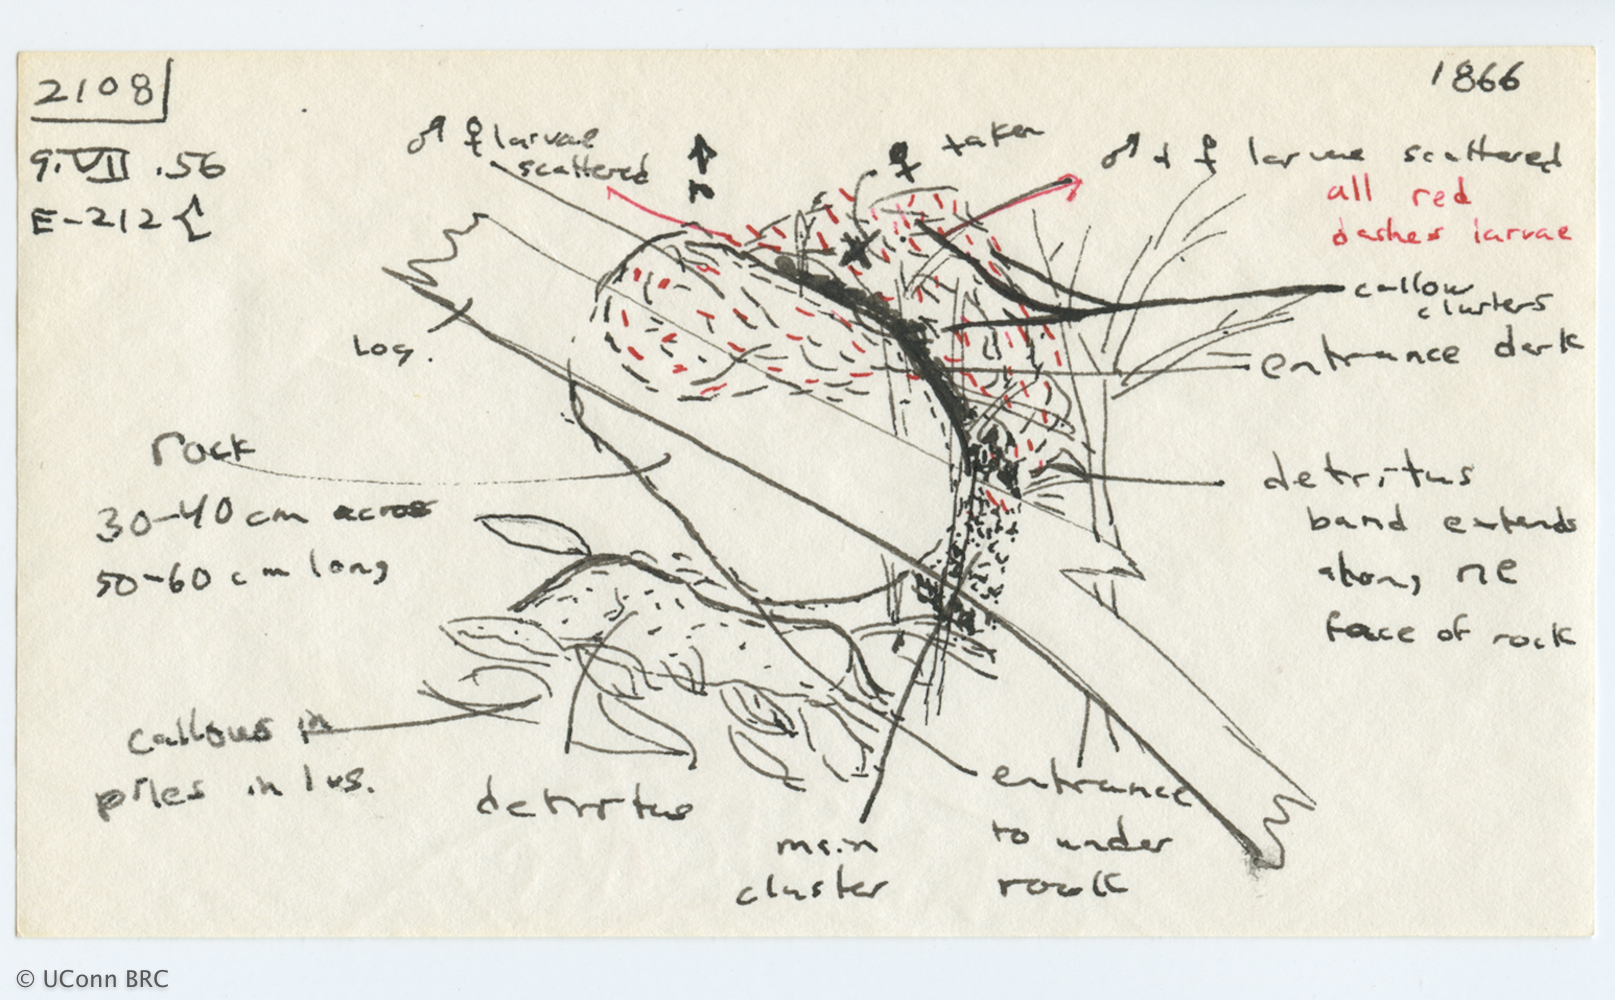 2108
1866
9.VII.56
E-212
♂ ♀ larvae
scattered
♀ taken
♂ + ♀ larvae scattered
all red
dashes larvae
callow
clusters
entrance dark
Log.
rock
30-40 cm across
50-60 cm long
detritus
band extends
along NE
face of rock
callows in
piles in lvs.
detritus
main
cluster
entrance
to under
rock
© UConn BRC